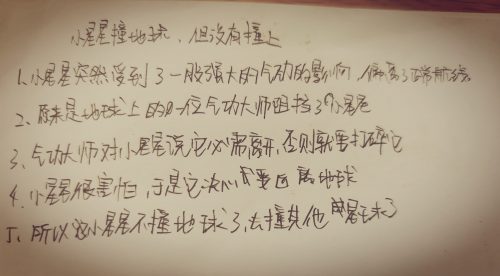 小星星撞地球、但没有撞上
1、小星星突然受到了一股强大的气功的影响,偏离了正常航线
2、原来是地球上的一位气功大师阻拦了小星星
3、气功大师对小星星说它必需离开,否则就要打碎它
4、小星星很害怕,于是它决心要远离地球
5、所以小星星不撞地球了,去撞其他星球了